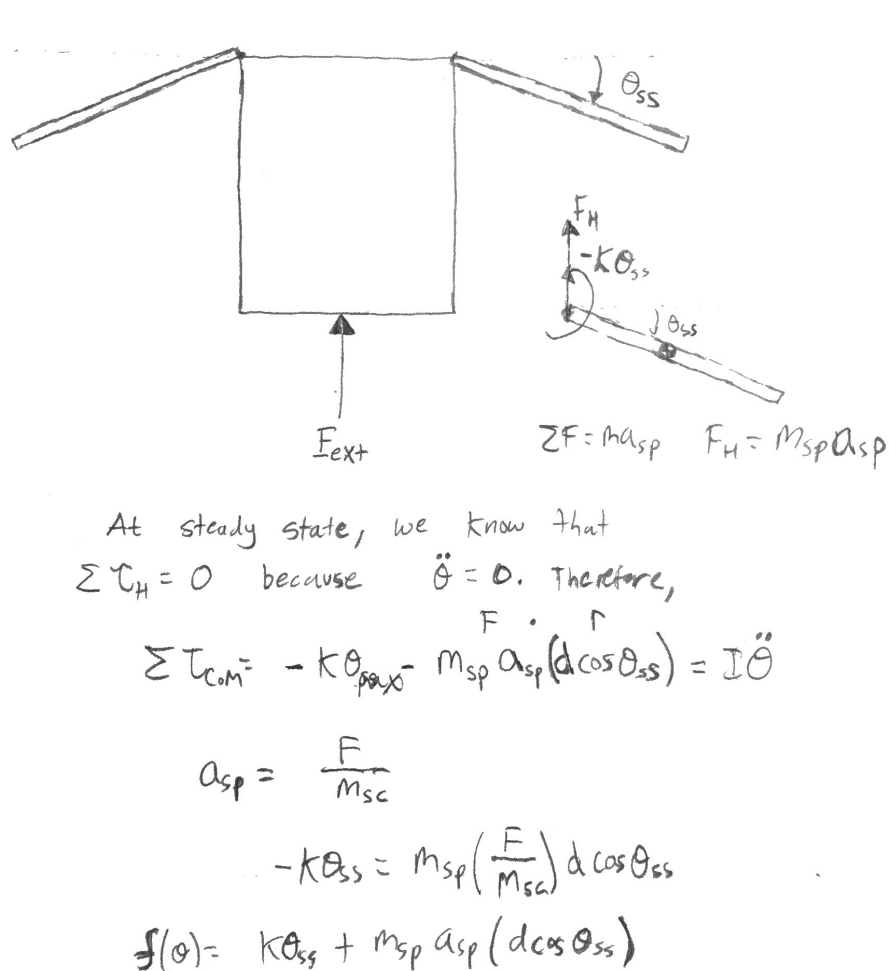 θss
F_H
-Kθss
θss
F_ext
ΣF = ma_sp F_H = M_sp a_sp
At steady state, we know that
Στ_H = 0 because θ̈ = 0. Therefore,
F · r
Στ_COM = -Kθ - m_sp a_sp (d cos θss) = Iθ̈
a_sp = F / m_sc
-Kθss = m_sp (F / m_sc) d cos θss
f(θ) = Kθss + m_sp a_sp (d cos θss)